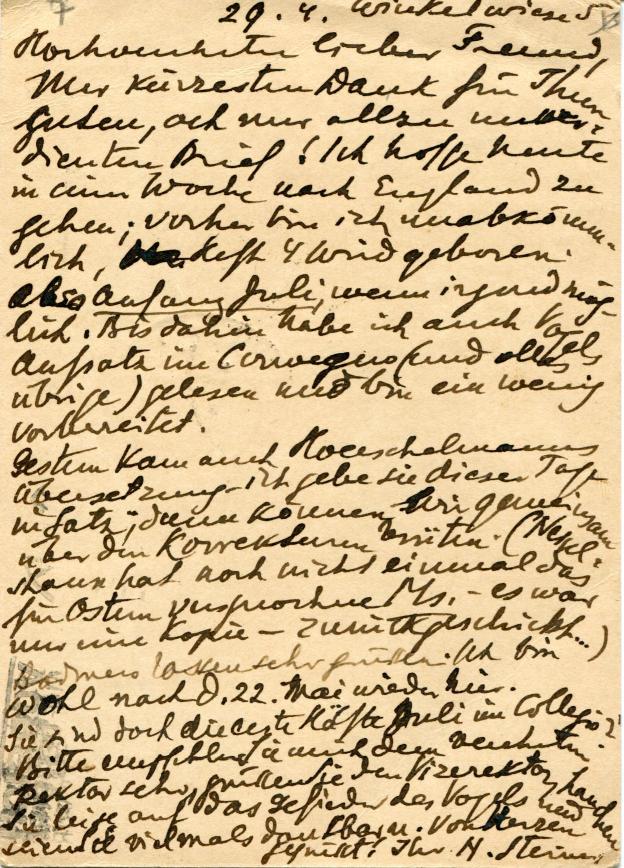 29. 4. Winkelwiese 5
Hochverehrter lieber Freund,
Nur kürzesten Dank für Ihren
guten, ach nur allzu unver-
dienten Brief! Ich hoffe heute
in einer Woche nach England zu
gehen; vorher bin ich unabkömm-
lich, Heft 4 wird geboren.
Also Anfang Juli, wenn irgend mög-
lich. Bis dahin habe ich auch Vogels
Aufsatz im (und alles
übrige) gelesen und bin ein wenig
vorbereitet.
Gestern kam auch Hoerschelmanns
Übersetzung – ich gebe sie dieser Tage
in Satz; dann können wir gemeinsam
über den Korrekturen brüten. (
hat noch nicht einmal das
für Ostern versprochne Ms. – es war
nur eine Kopie – zurückgeschickt...)
Bodmers lassen sehr grüßen. Ich bin
wohl nach d. 22. Mai wieder hier.
Sie sind doch die erste Hälfte Juli im Collegio?
Bitte empfehlen Sie mich dem verehrten
Rektor sehr, grüßen Sie den Vizerektor, hauchen
Sie leise auf das Gefieder des Vogels und
seien Sie vielmals dankbarst. Von Herzen
gegrüßt! Ihr. H. Steiner